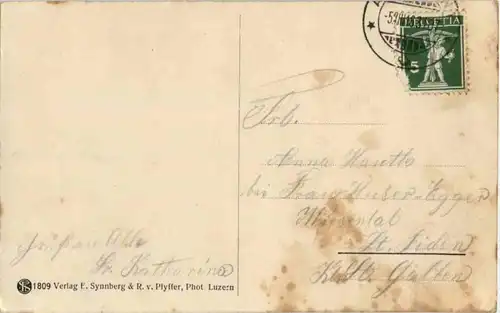 Grüße an Alle
Sr. Katharina
1809 Verlag E. Synnberg & R. v. Pfyffer, Phot Luzern
HELVETIA
5
Frl.
Anna
bei Frau Huser-Egger
Wiesental
St. Fiden
Kt. St. Gallen